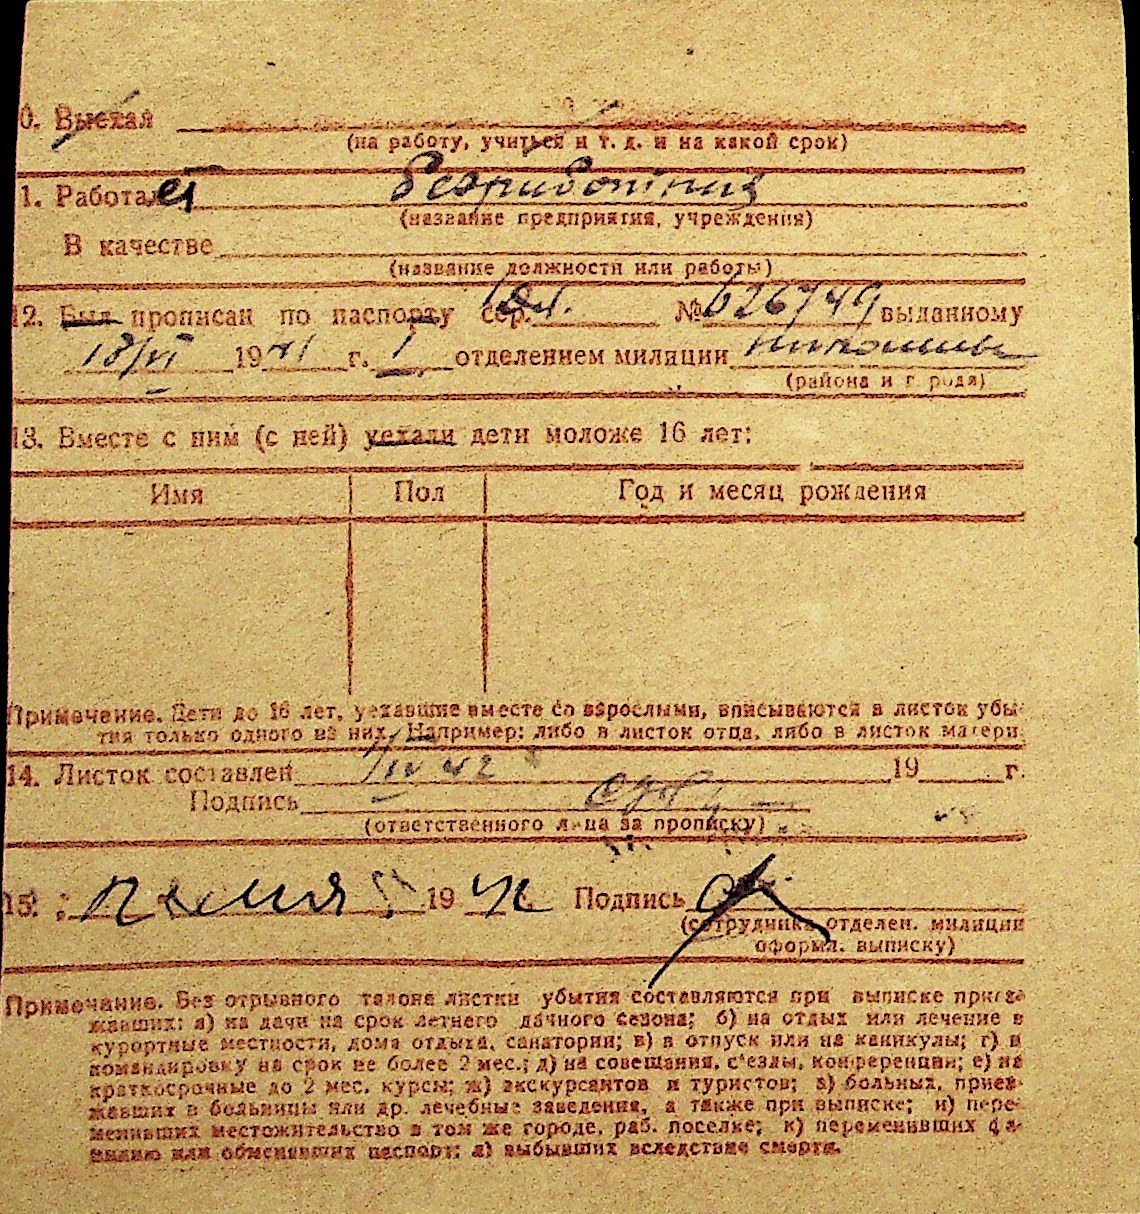 0. Выехал
(на работу, учиться и т. д. и на какой срок)
1. Работает
(название предприятия, учреждения)
В качестве
(название должности или работы)
12. Был прописан по паспорту сер. № 626749 выданному
18/VI 1941 г. I отделением милиции
(района и г рода)
13. Вместе с ним (с ней) уехали дети моложе 16 лет:
Имя Пол Год и месяц рождения
Примечание. Дети до 16 лет, уехавшие вместе со взрослыми, вписываются в листок убы-
тия только одного из них. Например: либо в листок отца, либо в листок матери.
14. Листок составлен 1/IV 42 19 г.
Подпись
(ответственного лица за прописку)
15. 19 42 Подпись
(сотрудника отделен. милиции
оформл. выписку)
Примечание. Без отрывного талона листки убытия составляются при выписке приез-
жавших: а) на дачи на срок летнего дачного сезона; б) на отдых или лечение в
курортные местности, дома отдыха, санатории; в) в отпуск или на каникулы; г) в
командировку на срок не более 2 мес.; д) на совещания, с'езды, конференции; е) на
краткосрочные до 2 мес. курсы; ж) экскурсантов и туристов; з) больных, приез-
жавших в больницы или др. лечебные заведения, а также при выписке; и) пере-
менивших местожительство в том же городе, раб. поселке; к) переменивших фа-
милию или обменявших паспорт; л) выбывших вследствие смерти.